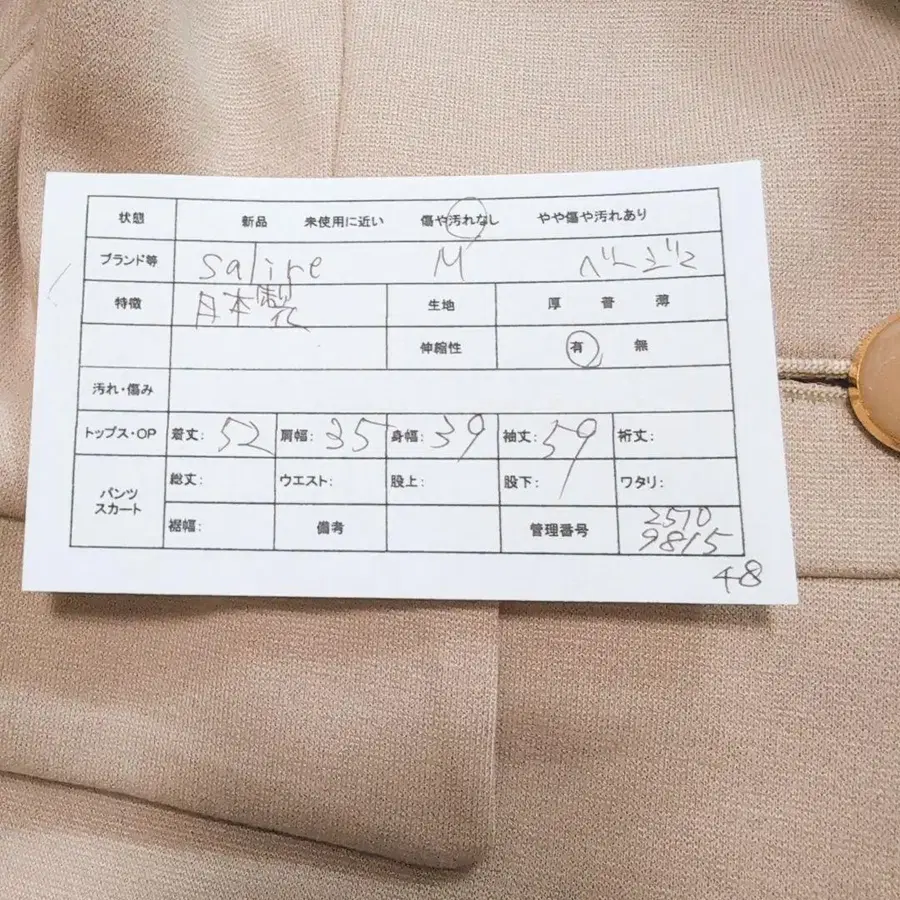 状態 新品 未使用に近い 傷や汚れなし やや傷や汚れあり
ブランド等 salire M ベージュ
特徴 日本製 生地 厚 普 薄
伸縮性 有 無
汚れ・傷み
トップス・OP 着丈: 52 肩幅: 35 身幅: 39 袖丈: 59 裄丈:
パンツ スカート 総丈: ウエスト: 股上: 股下: ワタリ:
裾幅: 備考 管理番号 2570
9815
48